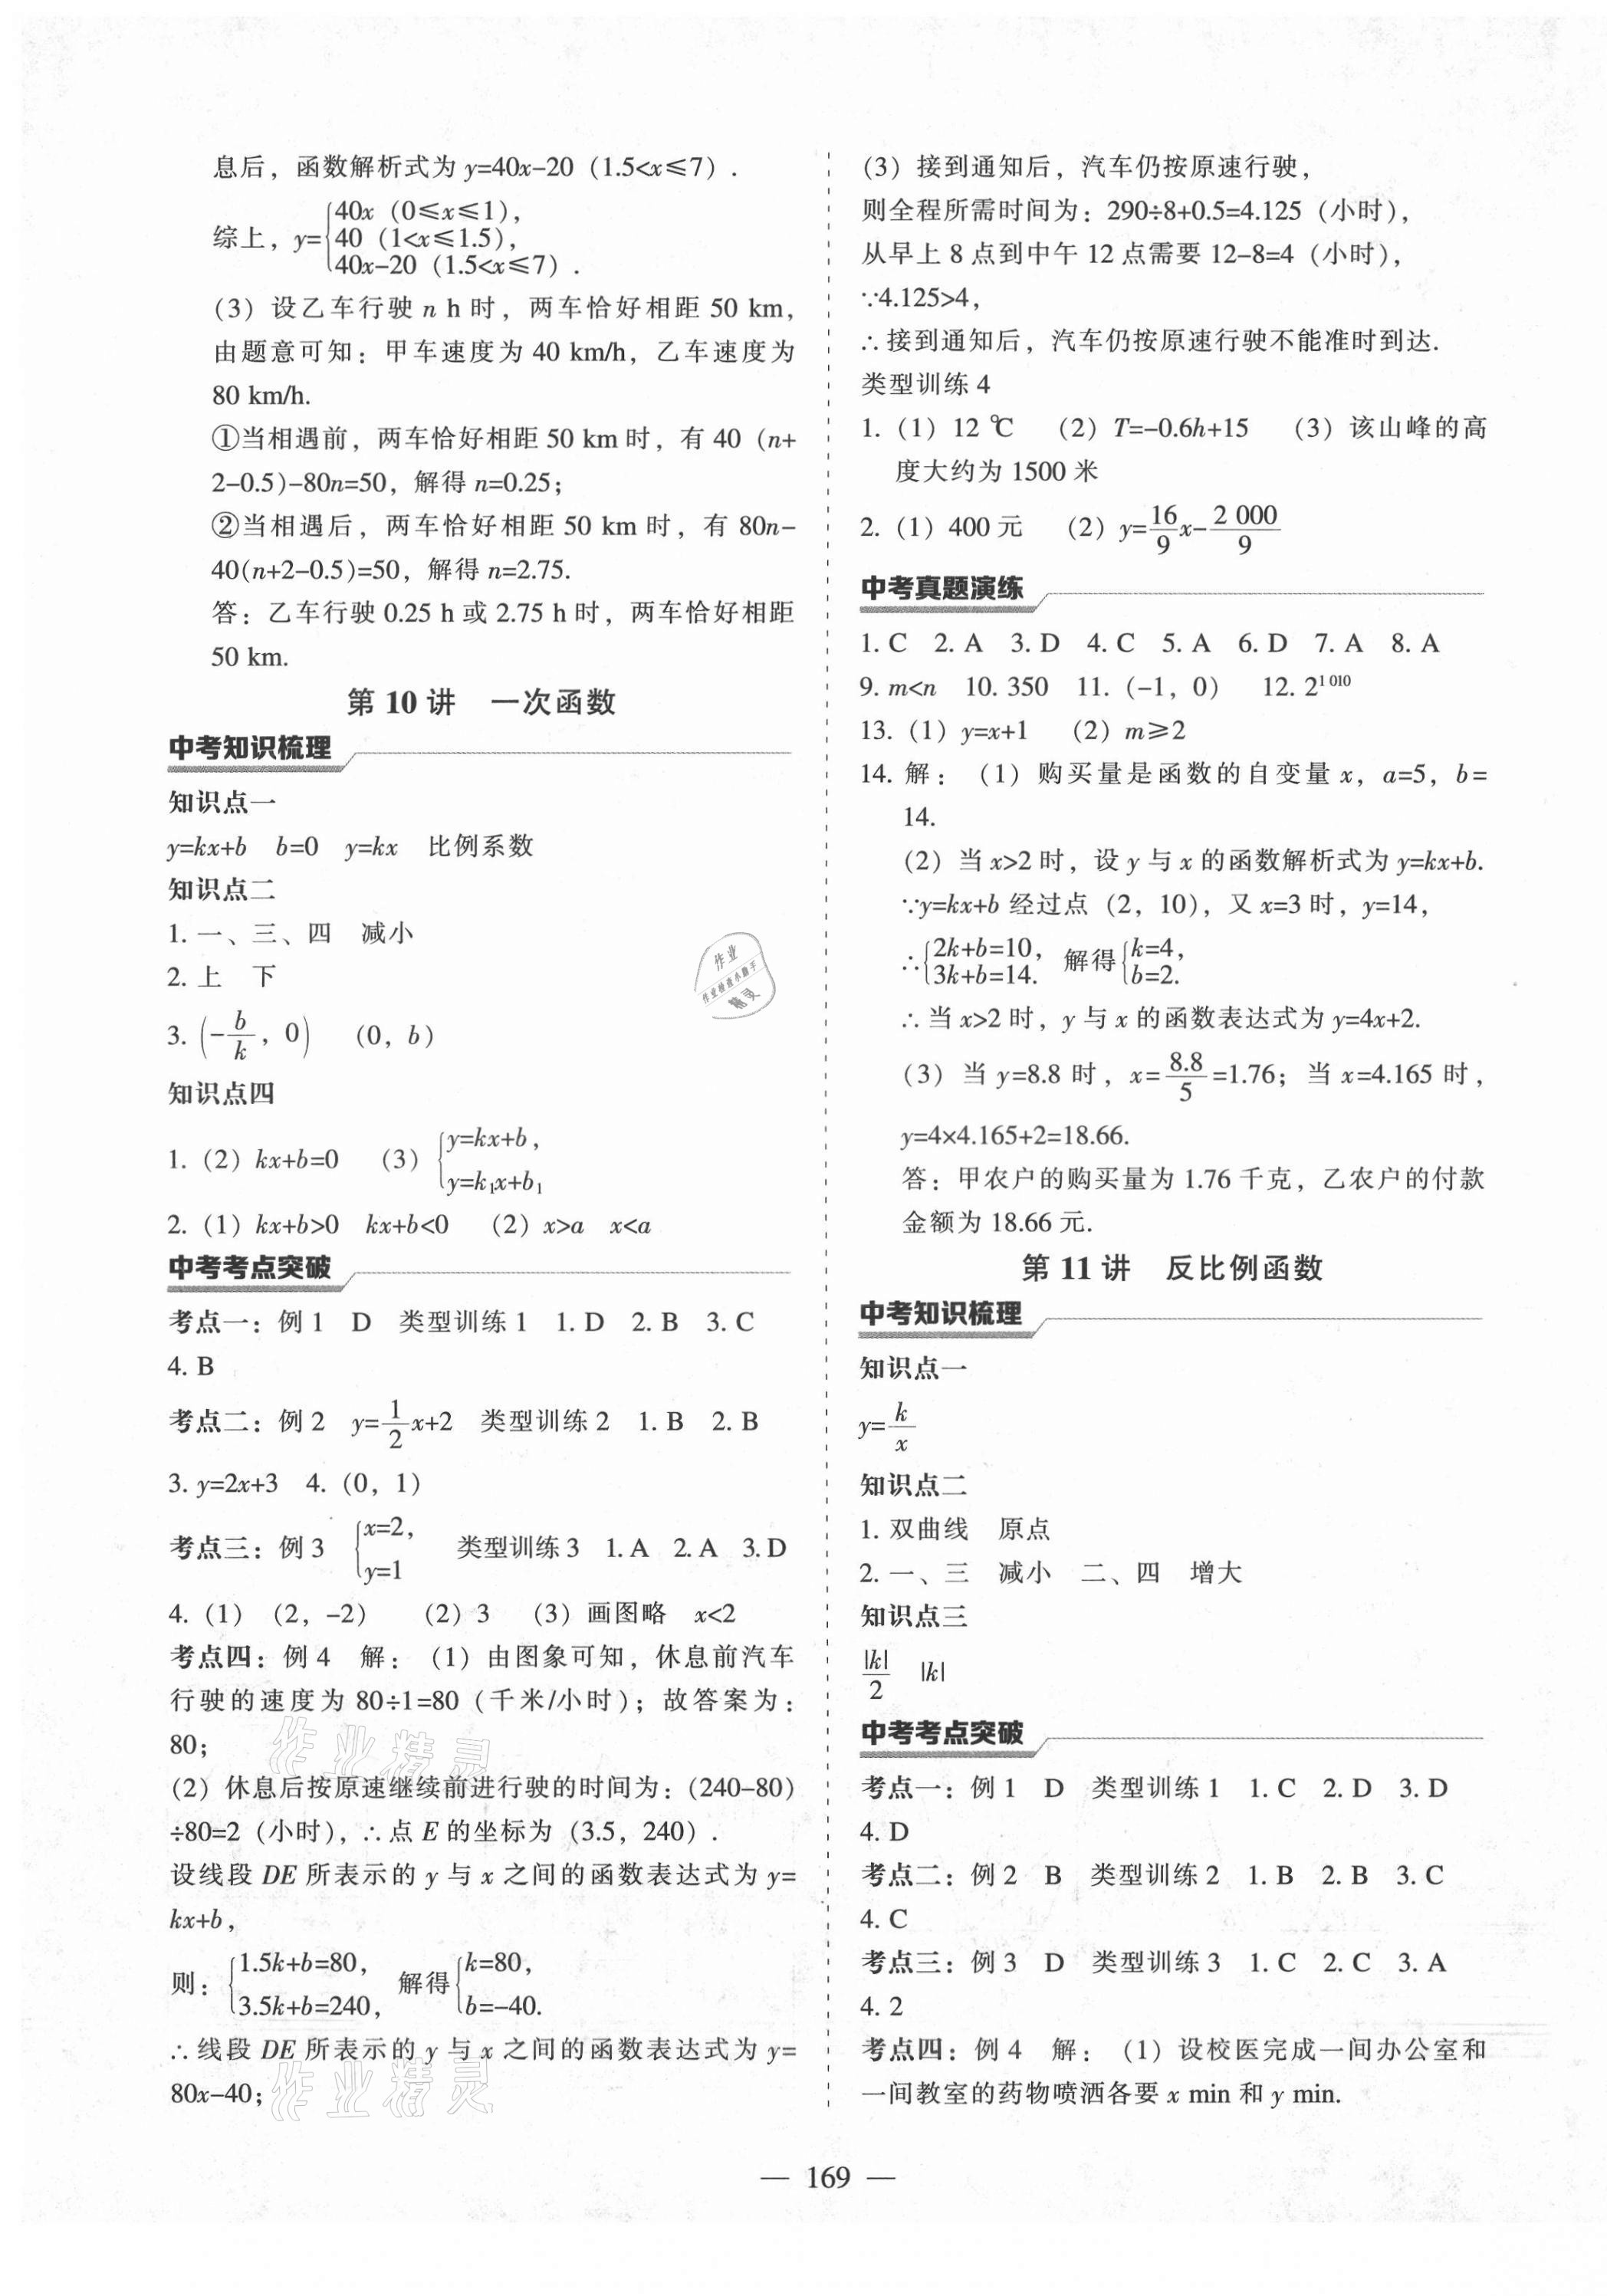 息后，函数解析式为 y=40x-20（1.5<x≤7）.
综上，y={40x（0≤x≤1），
40（1<x≤1.5），
40x-20（1.5<x≤7）.
（3）设乙车行驶 n h 时，两车恰好相距 50 km，
由题意可知：甲车速度为 40 km/h，乙车速度为
80 km/h.
①当相遇前，两车恰好相距 50 km 时，有 40（n+
2-0.5)-80n=50，解得 n=0.25；
②当相遇后，两车恰好相距 50 km 时，有 80n-
40(n+2-0.5)=50，解得 n=2.75.
答：乙车行驶 0.25 h 或 2.75 h 时，两车恰好相距
50 km.
第 10 讲　一次函数
中考知识梳理
知识点一
y=kx+b　b=0　y=kx　比例系数
知识点二
1. 一、三、四　减小
2. 上　下
3. (-b/k，0)　（0，b）
知识点四
1.（2）kx+b=0　（3）{y=kx+b，
y=k₁x+b₁
2.（1）kx+b>0　kx+b<0　（2）x>a　x<a
中考考点突破
考点一：例 1　D　类型训练 1　1. D　2. B　3. C
4. B
考点二：例 2　y=1/2x+2　类型训练 2　1. B　2. B
3. y=2x+3　4.（0，1）
考点三：例 3　{x=2，
y=1　类型训练 3　1. A　2. A　3. D
4.（1）（2，-2）　（2）3　（3）画图略　x<2
考点四：例 4　解：（1）由图象可知，休息前汽车
行驶的速度为 80÷1=80（千米/小时）；故答案为：
80；
（2）休息后按原速继续前进行驶的时间为：(240-80)
÷80=2（小时），∴点 E 的坐标为（3.5，240）.
设线段 DE 所表示的 y 与 x 之间的函数表达式为 y=
kx+b，
则：{1.5k+b=80，
3.5k+b=240，解得{k=80，
b=-40.
∴线段 DE 所表示的 y 与 x 之间的函数表达式为 y=
80x-40；
（3）接到通知后，汽车仍按原速行驶，
则全程所需时间为：290÷8+0.5=4.125（小时），
从早上 8 点到中午 12 点需要 12-8=4（小时），
∵4.125>4，
∴接到通知后，汽车仍按原速行驶不能准时到达.
类型训练 4
1.（1）12 ℃　（2）T=-0.6h+15　（3）该山峰的高
度大约为 1500 米
2.（1）400 元　（2）y=16/9x-2 000/9
中考真题演练
1. C　2. A　3. D　4. C　5. A　6. D　7. A　8. A
9. m<n　10. 350　11.（-1，0）　12. 2^1 010
13.（1）y=x+1　（2）m≥2
14. 解：（1）购买量是函数的自变量 x，a=5，b=
14.
（2）当 x>2 时，设 y 与 x 的函数解析式为 y=kx+b.
∵y=kx+b 经过点（2，10），又 x=3 时，y=14，
∴{2k+b=10，
3k+b=14.　解得{k=4，
b=2.
∴当 x>2 时，y 与 x 的函数表达式为 y=4x+2.
（3）当 y=8.8 时，x=8.8/5=1.76；当 x=4.165 时，
y=4×4.165+2=18.66.
答：甲农户的购买量为 1.76 千克，乙农户的付款
金额为 18.66 元.
第 11 讲　反比例函数
中考知识梳理
知识点一
y=k/x
知识点二
1. 双曲线　原点
2. 一、三　减小　二、四　增大
知识点三
|k|/2　|k|
中考考点突破
考点一：例 1　D　类型训练 1　1. C　2. D　3. D
4. D
考点二：例 2　B　类型训练 2　1. B　2. B　3. C
4. C
考点三：例 3　D　类型训练 3　1. C　2. C　3. A
4. 2
考点四：例 4　解：（1）设校医完成一间办公室和
一间教室的药物喷洒各要 x min 和 y min.
— 169 —
作业
作业检查小助手
精灵
作业精灵
作业精灵